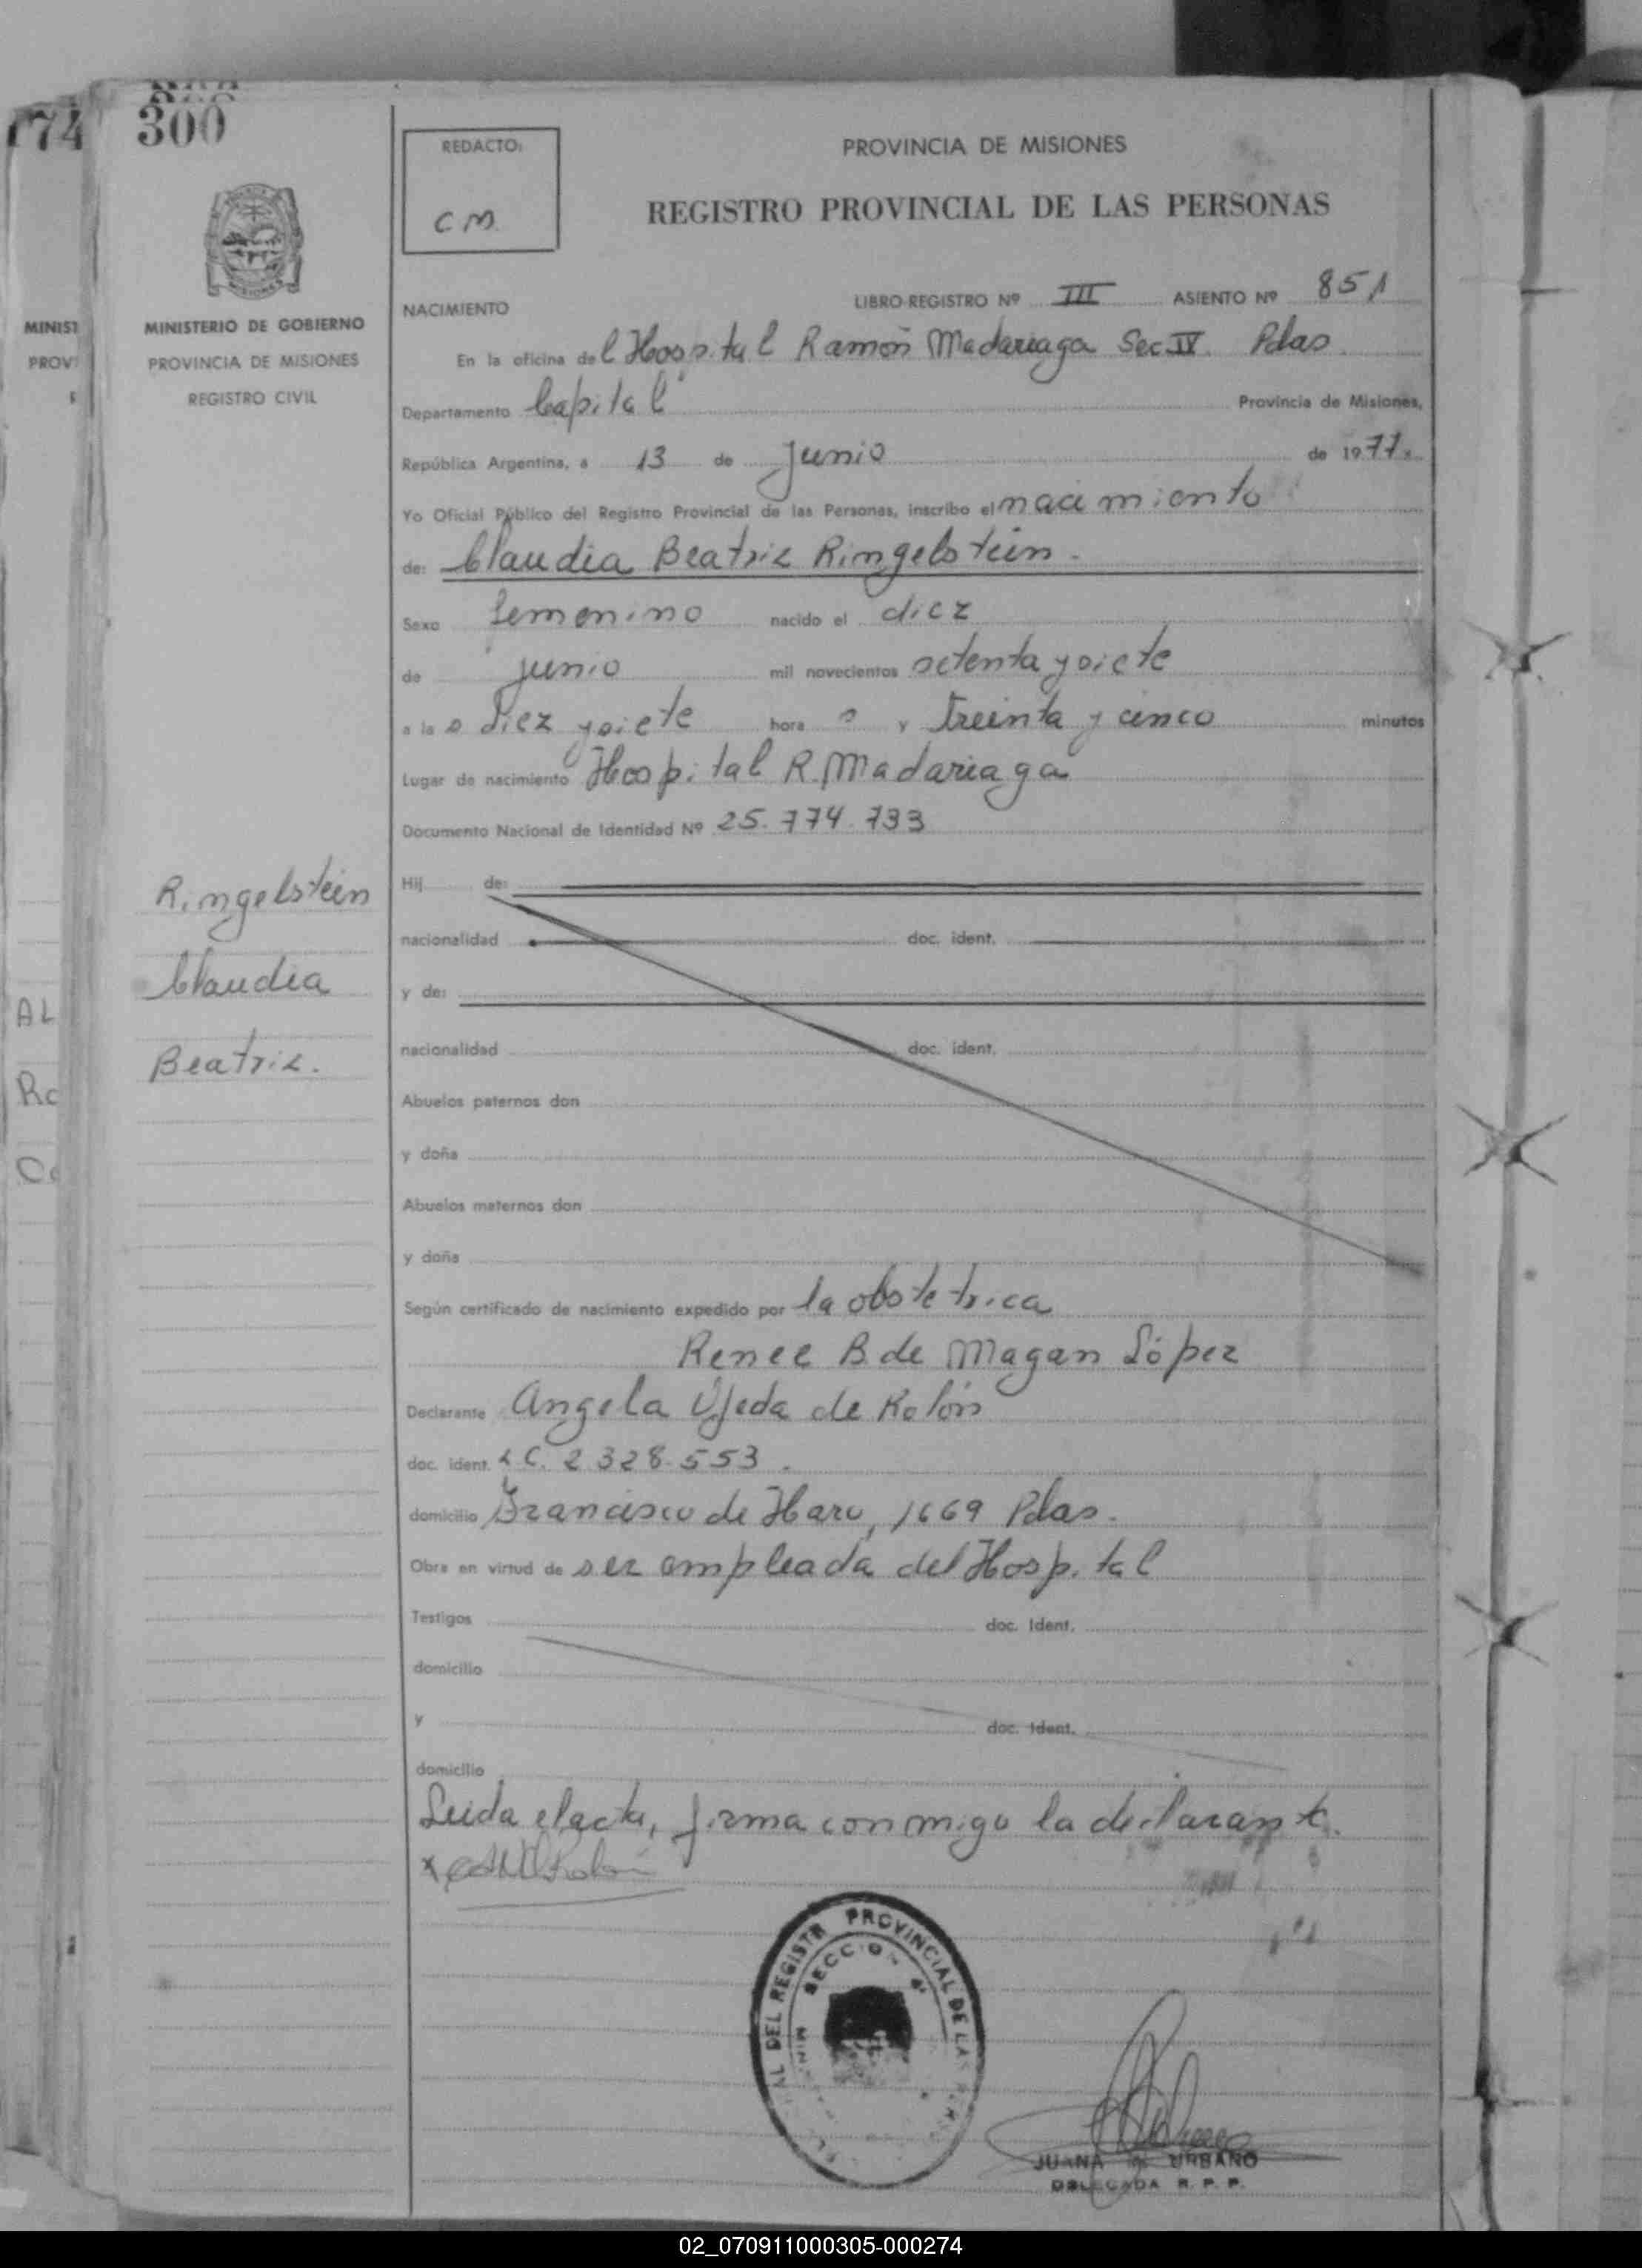 174
300
REDACTO:
C M.
PROVINCIA DE MISIONES
REGISTRO PROVINCIAL DE LAS PERSONAS
NACIMIENTO
LIBRO-REGISTRO Nº III ASIENTO Nº 851
MINIST
PROV
MINISTERIO DE GOBIERNO
PROVINCIA DE MISIONES
REGISTRO CIVIL
En la oficina del Hospital Ramón Madariaga Sec IV. Pdas.
Departamento Capital Provincia de Misiones,
República Argentina, a 13 de Junio de 1977.
Yo Oficial Público del Registro Provincial de las Personas, inscribo el nacimiento
de: Claudia Beatriz Ringelstein.
Sexo femenino nacido el diez
de junio mil novecientos setenta y siete
a las diez y siete horas y treinta y cinco minutos
Lugar de nacimiento Hospital R. Madariaga
Documento Nacional de Identidad Nº 25.774.733
Ringelstein
Claudia
Beatriz.
Hij de:
nacionalidad doc. ident.
y de:
nacionalidad doc. ident.
Abuelos paternos don
y doña
Abuelos maternos don
y doña
AL
Ro
Según certificado de nacimiento expedido por la obstetrica
Renee B. de Magan López
Declarante Angela Ojeda de Rolón
doc. ident. L C. 2.328.553.
domicilio Francisco de Haro, 1669 Pdas.
Obra en virtud de ser empleada del Hospital
Testigos doc. Ident.
domicilio
y doc. Ident.
domicilio
Leida el acta, firma conmigo la declarante.
DEL REGISTR PROVINCIAL DE LAS
SECCIO 4ª
JUANA URBANO
DELEGADA R. P. P.
02_070911000305-000274